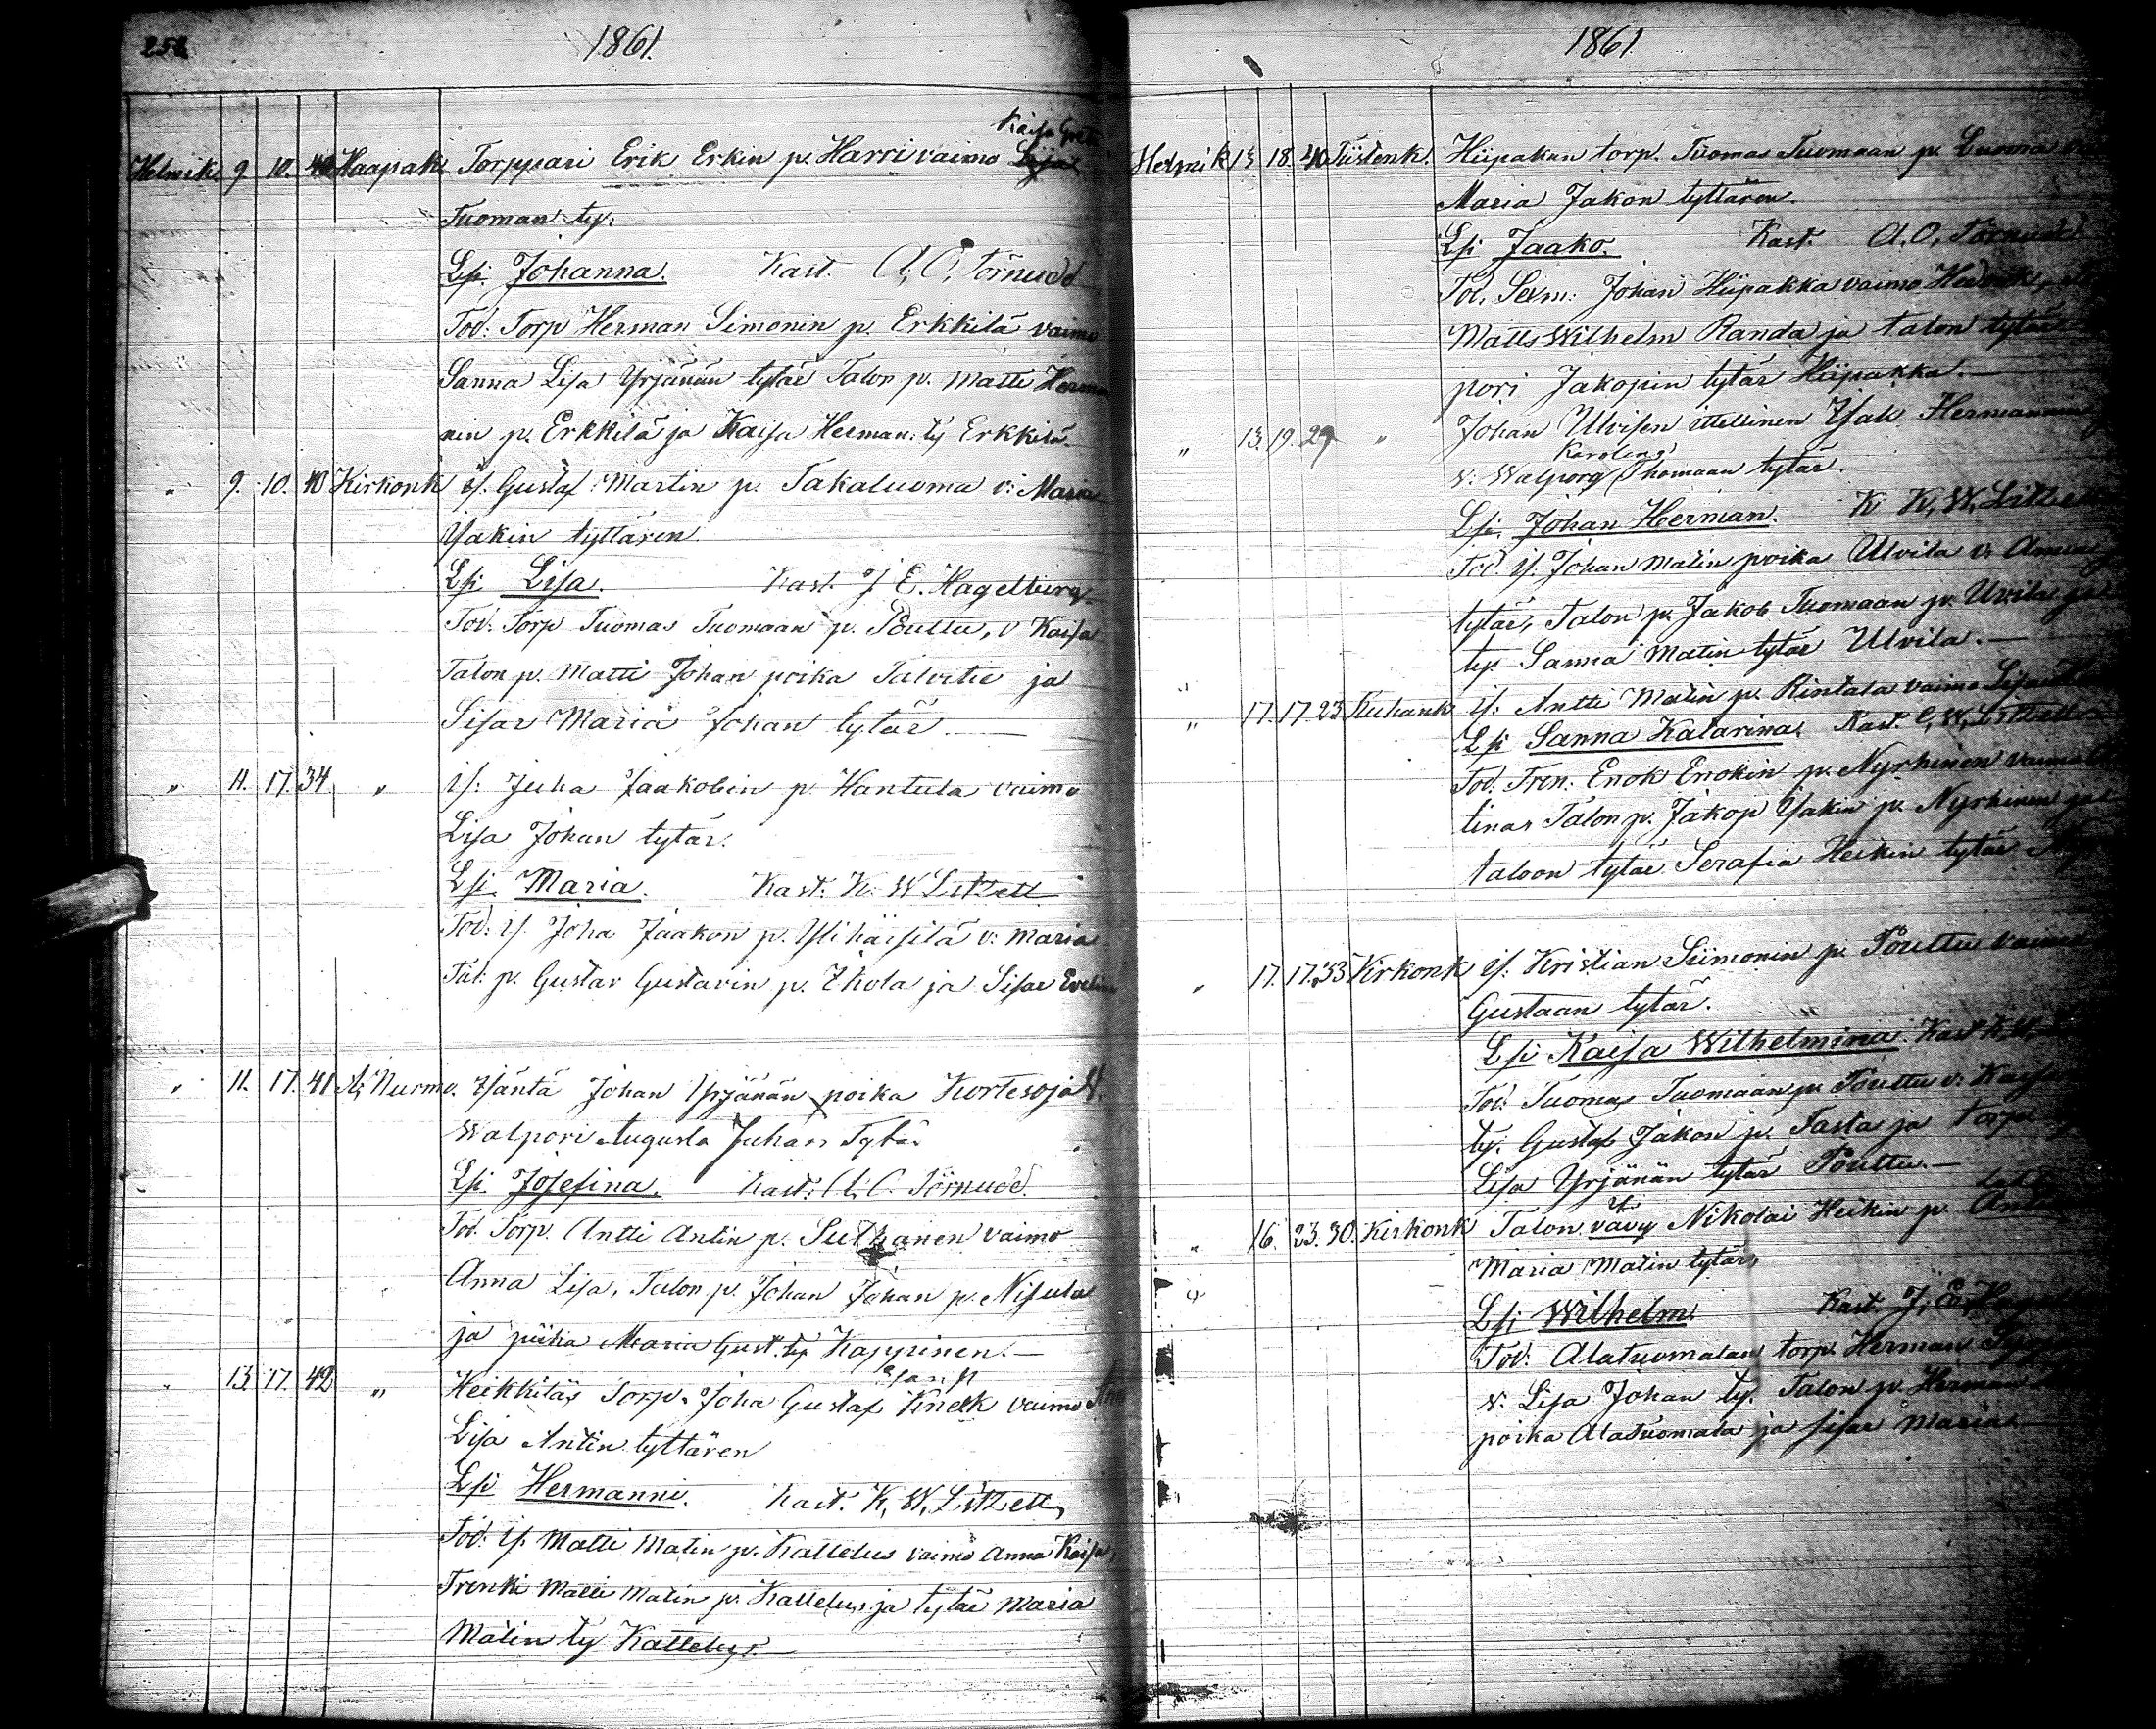 252
1861.
Kaisa Greta
Helmik. 9 10. 40 Haapak. Torppari Erik Erkin p. Harri vaimo Lisa
Tuoman ty:
Lsi Johanna. Kast. A. O. Törnudd
Tod: Torp Herman Simonin p. Erkkilä vaimo
Sanna Lisa Yrjänän tytär Talon p. Matti Herma
nin p. Erkkilä ja Kaisa Herman. ty Erkkilä.
" 9. 10. 40 Kirkonk is. Gustaf Martin p. Takaluoma v: Maria
Isakin tyttären
Lsi Lisa. Kast. J E. Hagelberg.
Tod: Torp Tuomas Tuomaan p. Pouttu, v Kaisa
Talon p. Matti Johan poika Talvitie ja
Sisar Maria Johan tytär
" 11. 17. 34 " is: Juha Jaakobin p Hantula vaimo
Lisa Johan tytär.
Lsi. Maria. Kast. K. W Litzell
Tod: is. Joha Jaakon p. Ylihärsilä v: Maria
Tal: p. Gustav Gustavin p. Ikola ja Sisar Evelina
" 11. 17. 41 A, Nurmo. Isäntä Johan Yrjänän poika Kortesoja V.
Walpori Augusta Juhan Tytär
Lsi. Josefina. Kast: A. O. Törnudd.
Tod. Torp. Antti Antin p. Suthanen vaimo
Anna Lisa, Talon p. Johan Johan p. Nisula
ja piika Maria Gust. ty Kappinen.
" 13. 17. 42 " Heikkilän Torp. Joha Gustaf Knekk vaimo
Lisa Antin tyttären
Lsi Hermanni. Kast. K, W, Litzell,
Tod: is. Matti Matin p. Kattelus vaimo Anna Kaisa,
Trenki Matti Matin p. Kattelus ja tytär Maria
Matin ty Kattelus.
1861
Helmik 13 18. 40 Tiistenk. Hiipakan torp. Tuomas Tuomaan p. Luoma
Maria Jakon tyttären.
Lsi Jaako. Kast. A. O. Törnudd
Tod, Johan Hiipakka vaimo
Matts Wilhelm Randa ja talon tytär
pori Jakopin tytär Hiipakka.
" 13. 19. 29 " Johan Ulvisen ittellinen Isak Hermannin
Karolena
v: Walporg Thomaan tytär.
Lsi Johan Herman. K K, W, Litzell
Tod. is. Johan Matin poika Ulvila v. Anna
tytär, Talon p. Jakob Tuomaan p. Uvila ja
ty. Sanna Matin tytär Ulvila.
" 17. 17 23 is: Antti Matin p. Rintala vaimo Lisa
Lsi Sanna Katarina. Kast. C, W, Litzell
Tod: Tren: Enok Enokin p. Nyrhinen vaimo
tina, Talon p. Jakop Isakin p. Nyrhinen ja
taloon tytär Serafia Heikin tytär
" 17. 17. 33 Kirkonk is: Kristian Siimonin p. Pouttu vaimo
Gustaan tytär.
Lsi Kaisa Wilhelmina. Kast K, W,
Tod: Tuomas Tuomaan p. Pouttu v. Kaisa
ty. Gustaf Jakon p. Tasta ja torp
Lisa Yrjänän tytär Pouttu.
" 16. 23. 30. Kirkonk Talon vävy Nikolai Heikin p.
Maria Matin tytär,
Lsi Wilhelm. Kast. J, E,
Tod: Alatuomalan torp. Herman
v. Lisa Johan ty. Talon p. Herman
poika Alatuomala ja sisar Maria